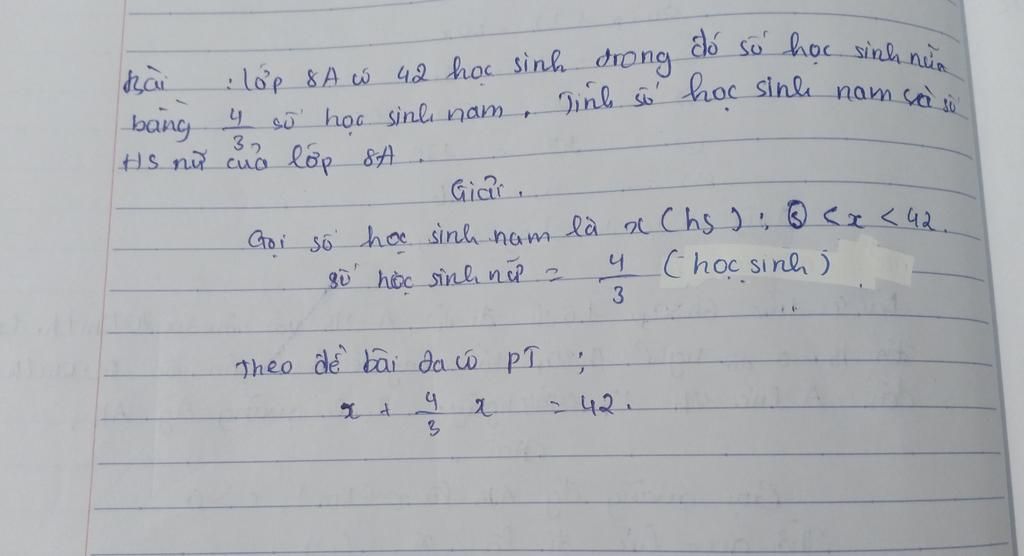 Bài : lớp 8A có 42 học sinh trong đó số học sinh nữ
bằng 4/3 số học sinh nam. Tính số học sinh nam và số
HS nữ của lớp 8A.
Giải.
Gọi số học sinh nam là x (hs); 0 < x < 42.
số học sinh nữ = 4/3 (học sinh)
Theo đề bài ta có PT;
x + 4/3 x = 42.